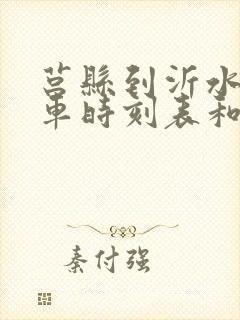 莒縣到沂水
車時刻表和
秦付强